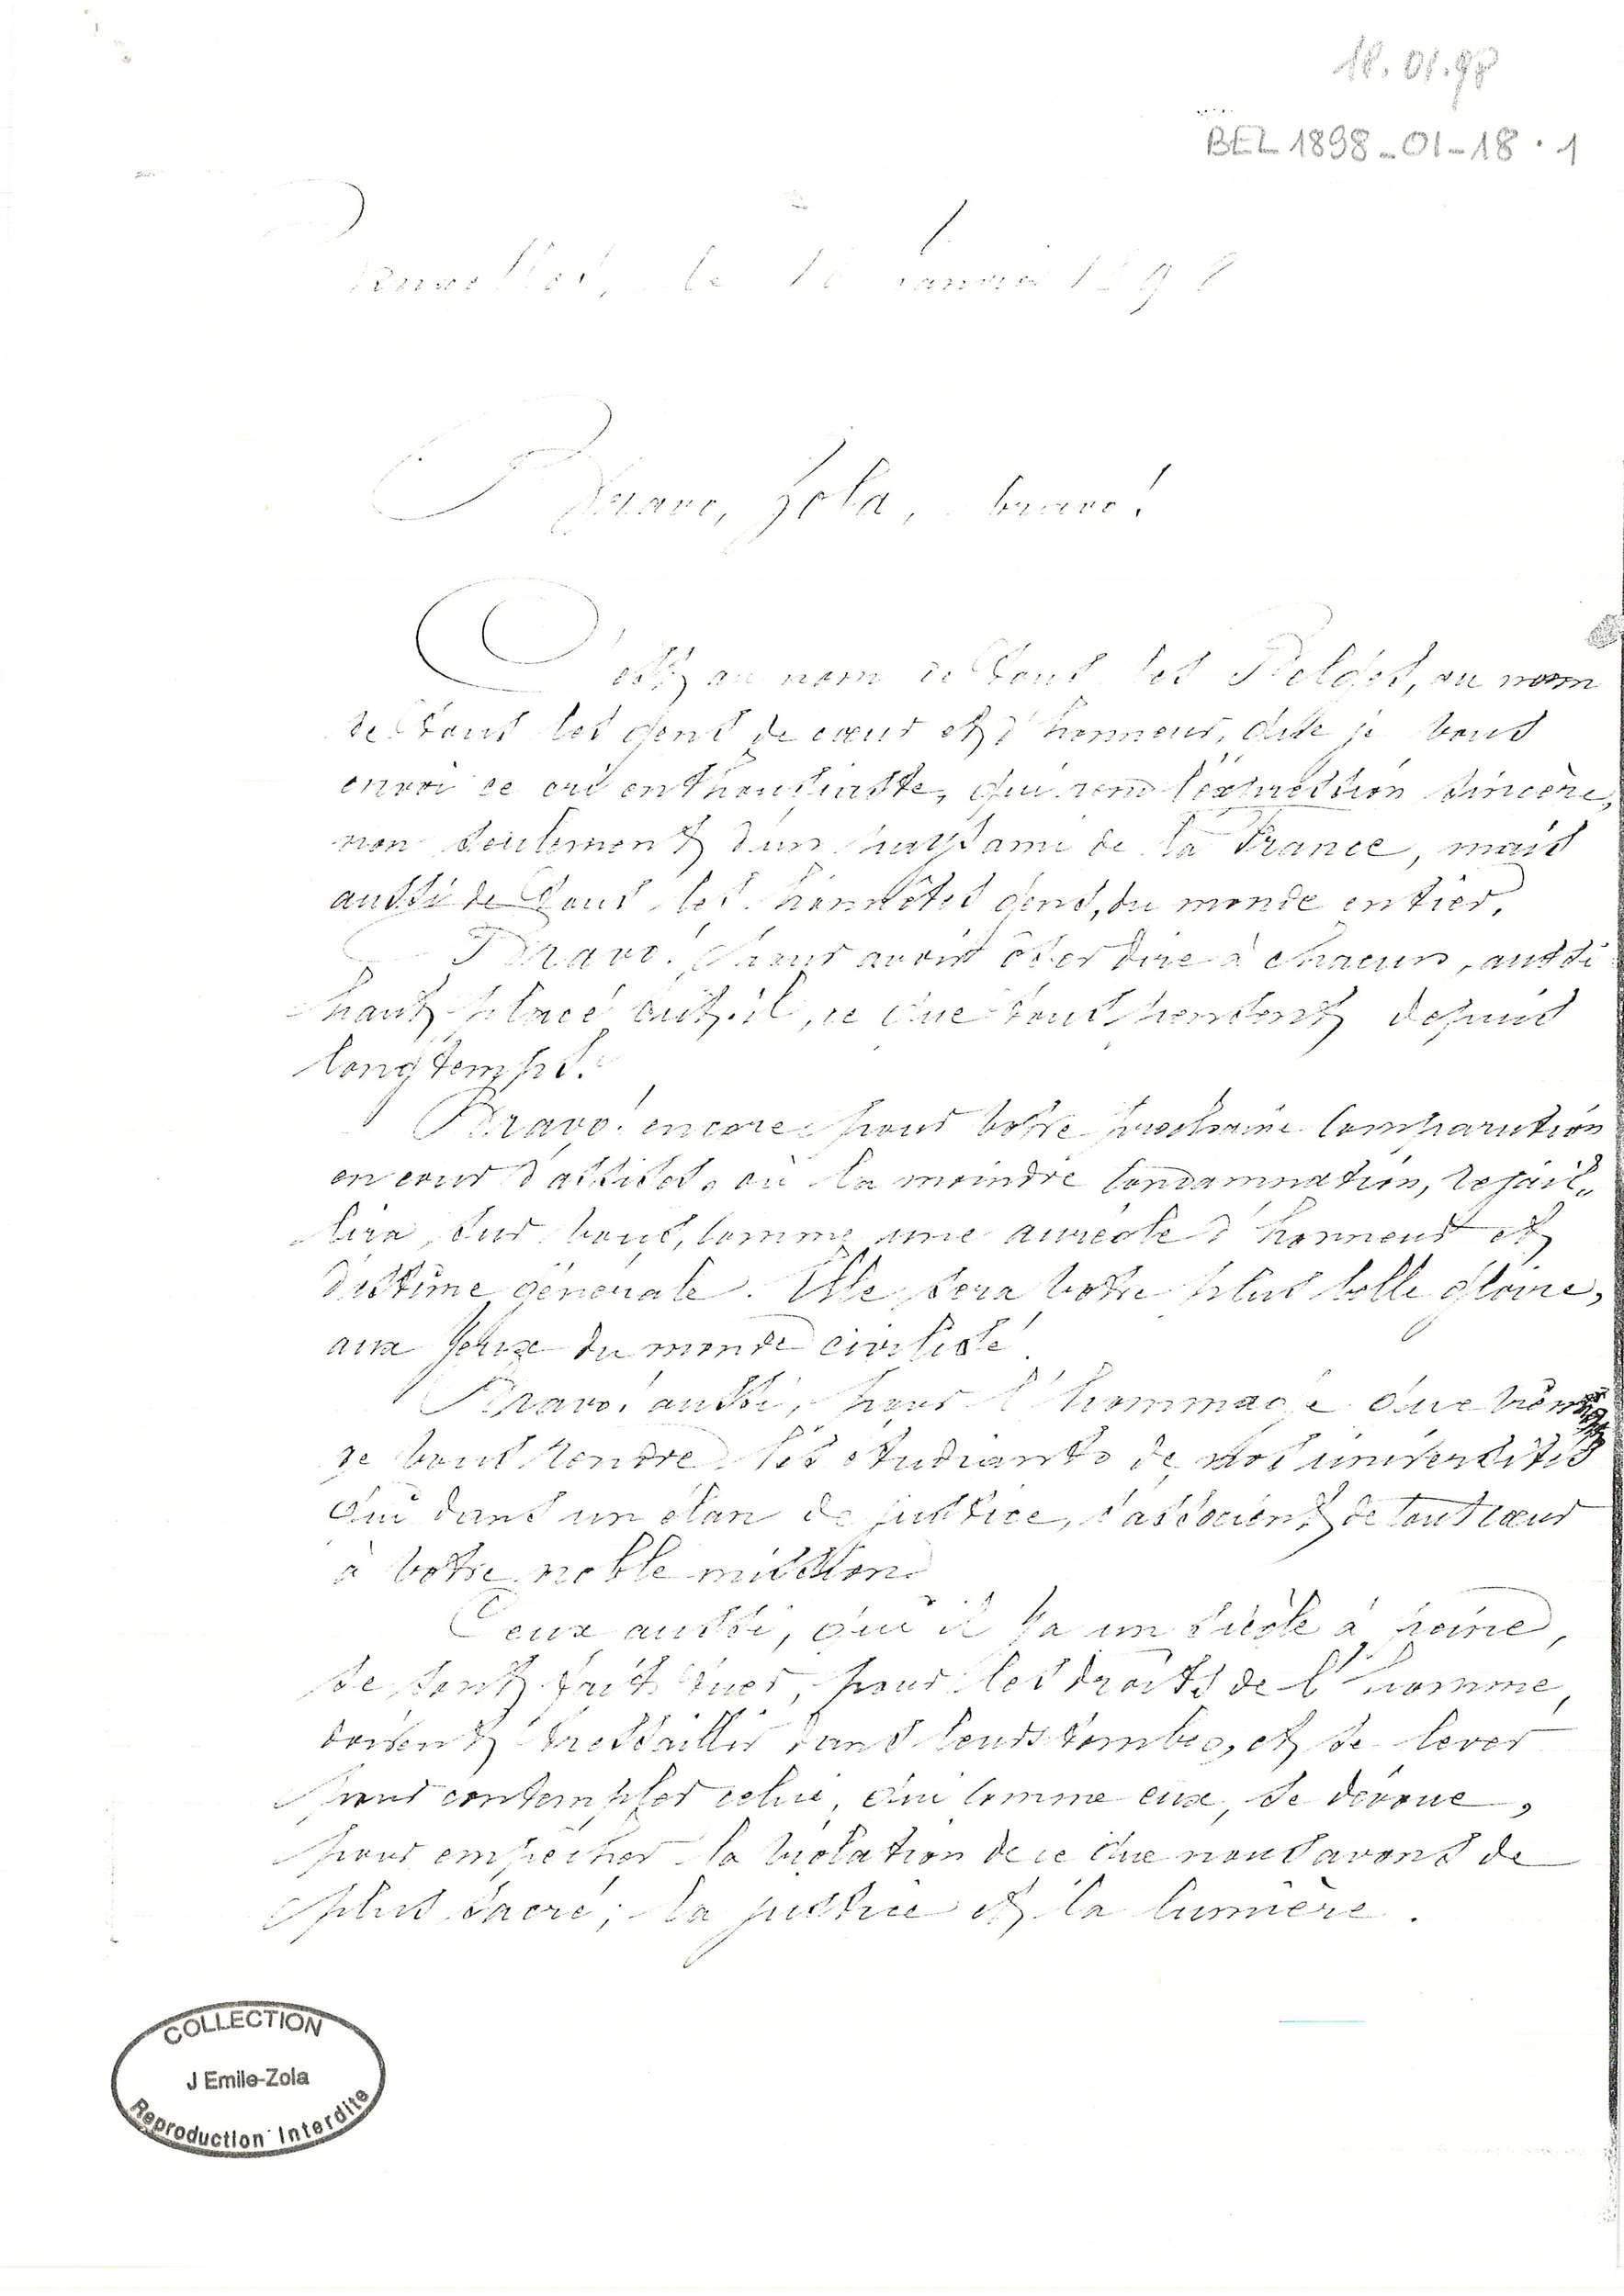 18.01.98
BEL 1898-01-18.1
Bruxelles, le 18 Janvier 1898
Bravo, Zola, bravo!
C'est au nom de tous les Belges, au nom
de tous les gens de cœur et d'honneur, que je vous
envoi ce cri enthousiaste, qui rend l'expression sincère,
non seulement d'un pays ami de la France, mais
aussi de tous les honnêtes gens, du monde entier.
Bravo! pour avoir oser dire à chacun, aussi
haut placé suit-il, ce que tous pensent depuis
longtemps.
Bravo! encore pour votre prochaine comparution
en cour d'assises, où la moindre condamnation, rejail-
lira sur vous, comme une auréole d'honneur et
d'estime générale. Elle sera votre plus belle gloire,
aux yeux du monde civilisé.
Bravo! aussi, pour l'hommage que
de vous rendre les étudiants de nos universités
qui dans un élan de justice, s'associent de tout cœur
à votre noble mission.
Ceux aussi, qui il y a un siècle à peine,
se sont fait tuer, pour les droits de l'homme,
doivent tressaillir dans leurs tombes, et se lever
pour contempler celui, qui comme eux, se dévoue,
pour empêcher la violation de ce que nous avons de
plus sacré; la justice et la lumière.
COLLECTION
J Emile-Zola
Reproduction Interdite